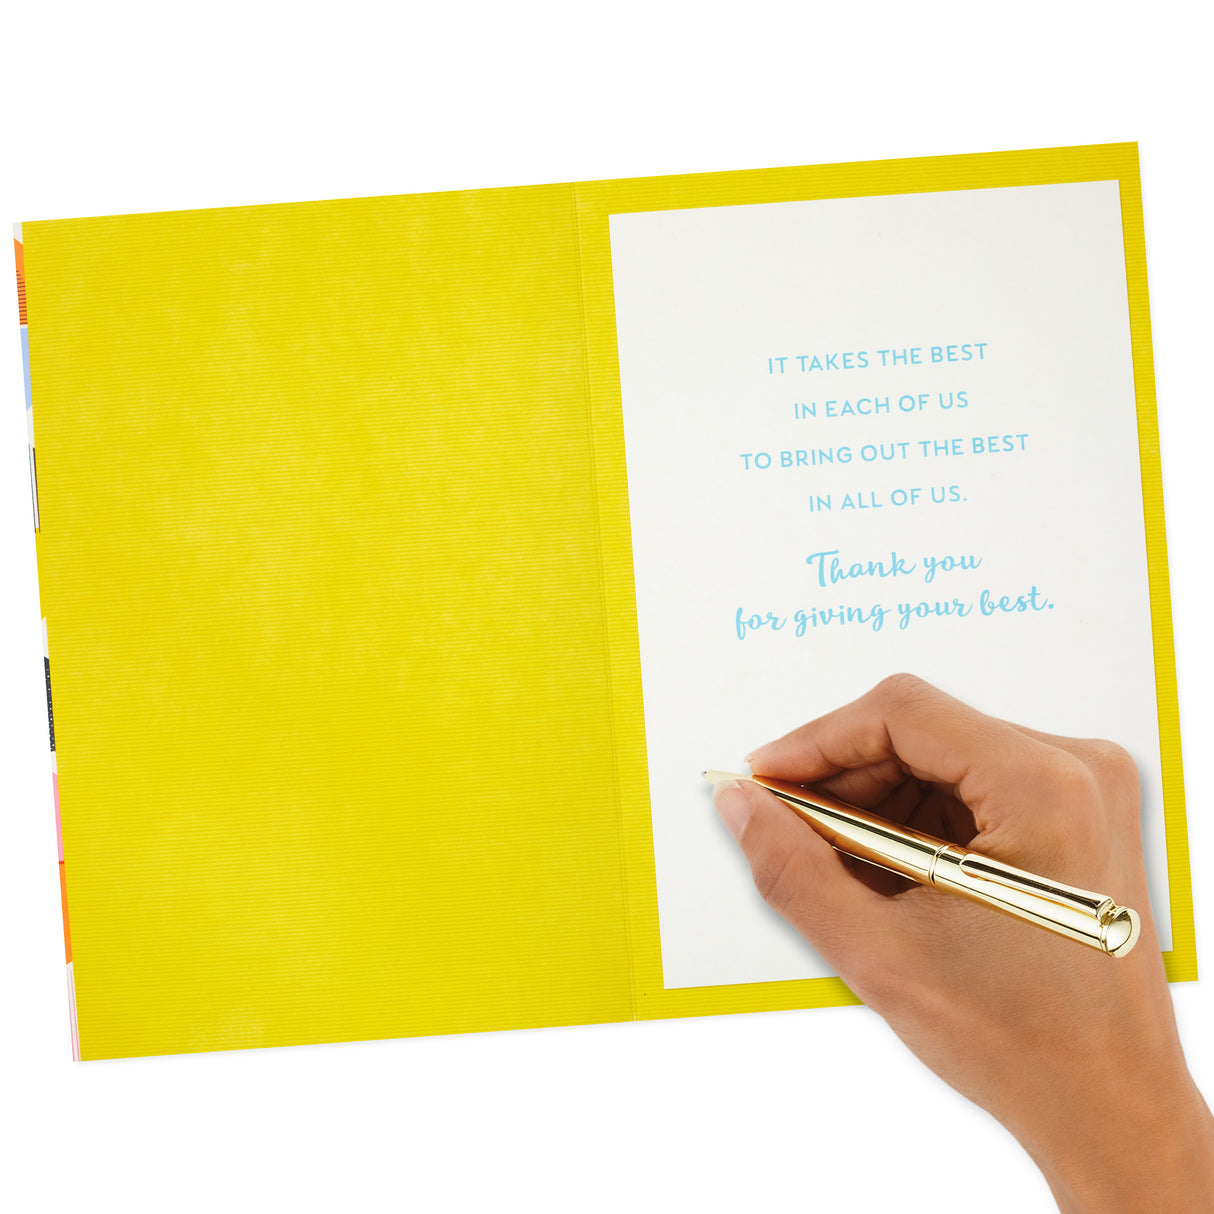 IT TAKES THE BEST
IN EACH OF US
TO BRING OUT THE BEST
IN ALL OF US.
Thank you
for giving your best.